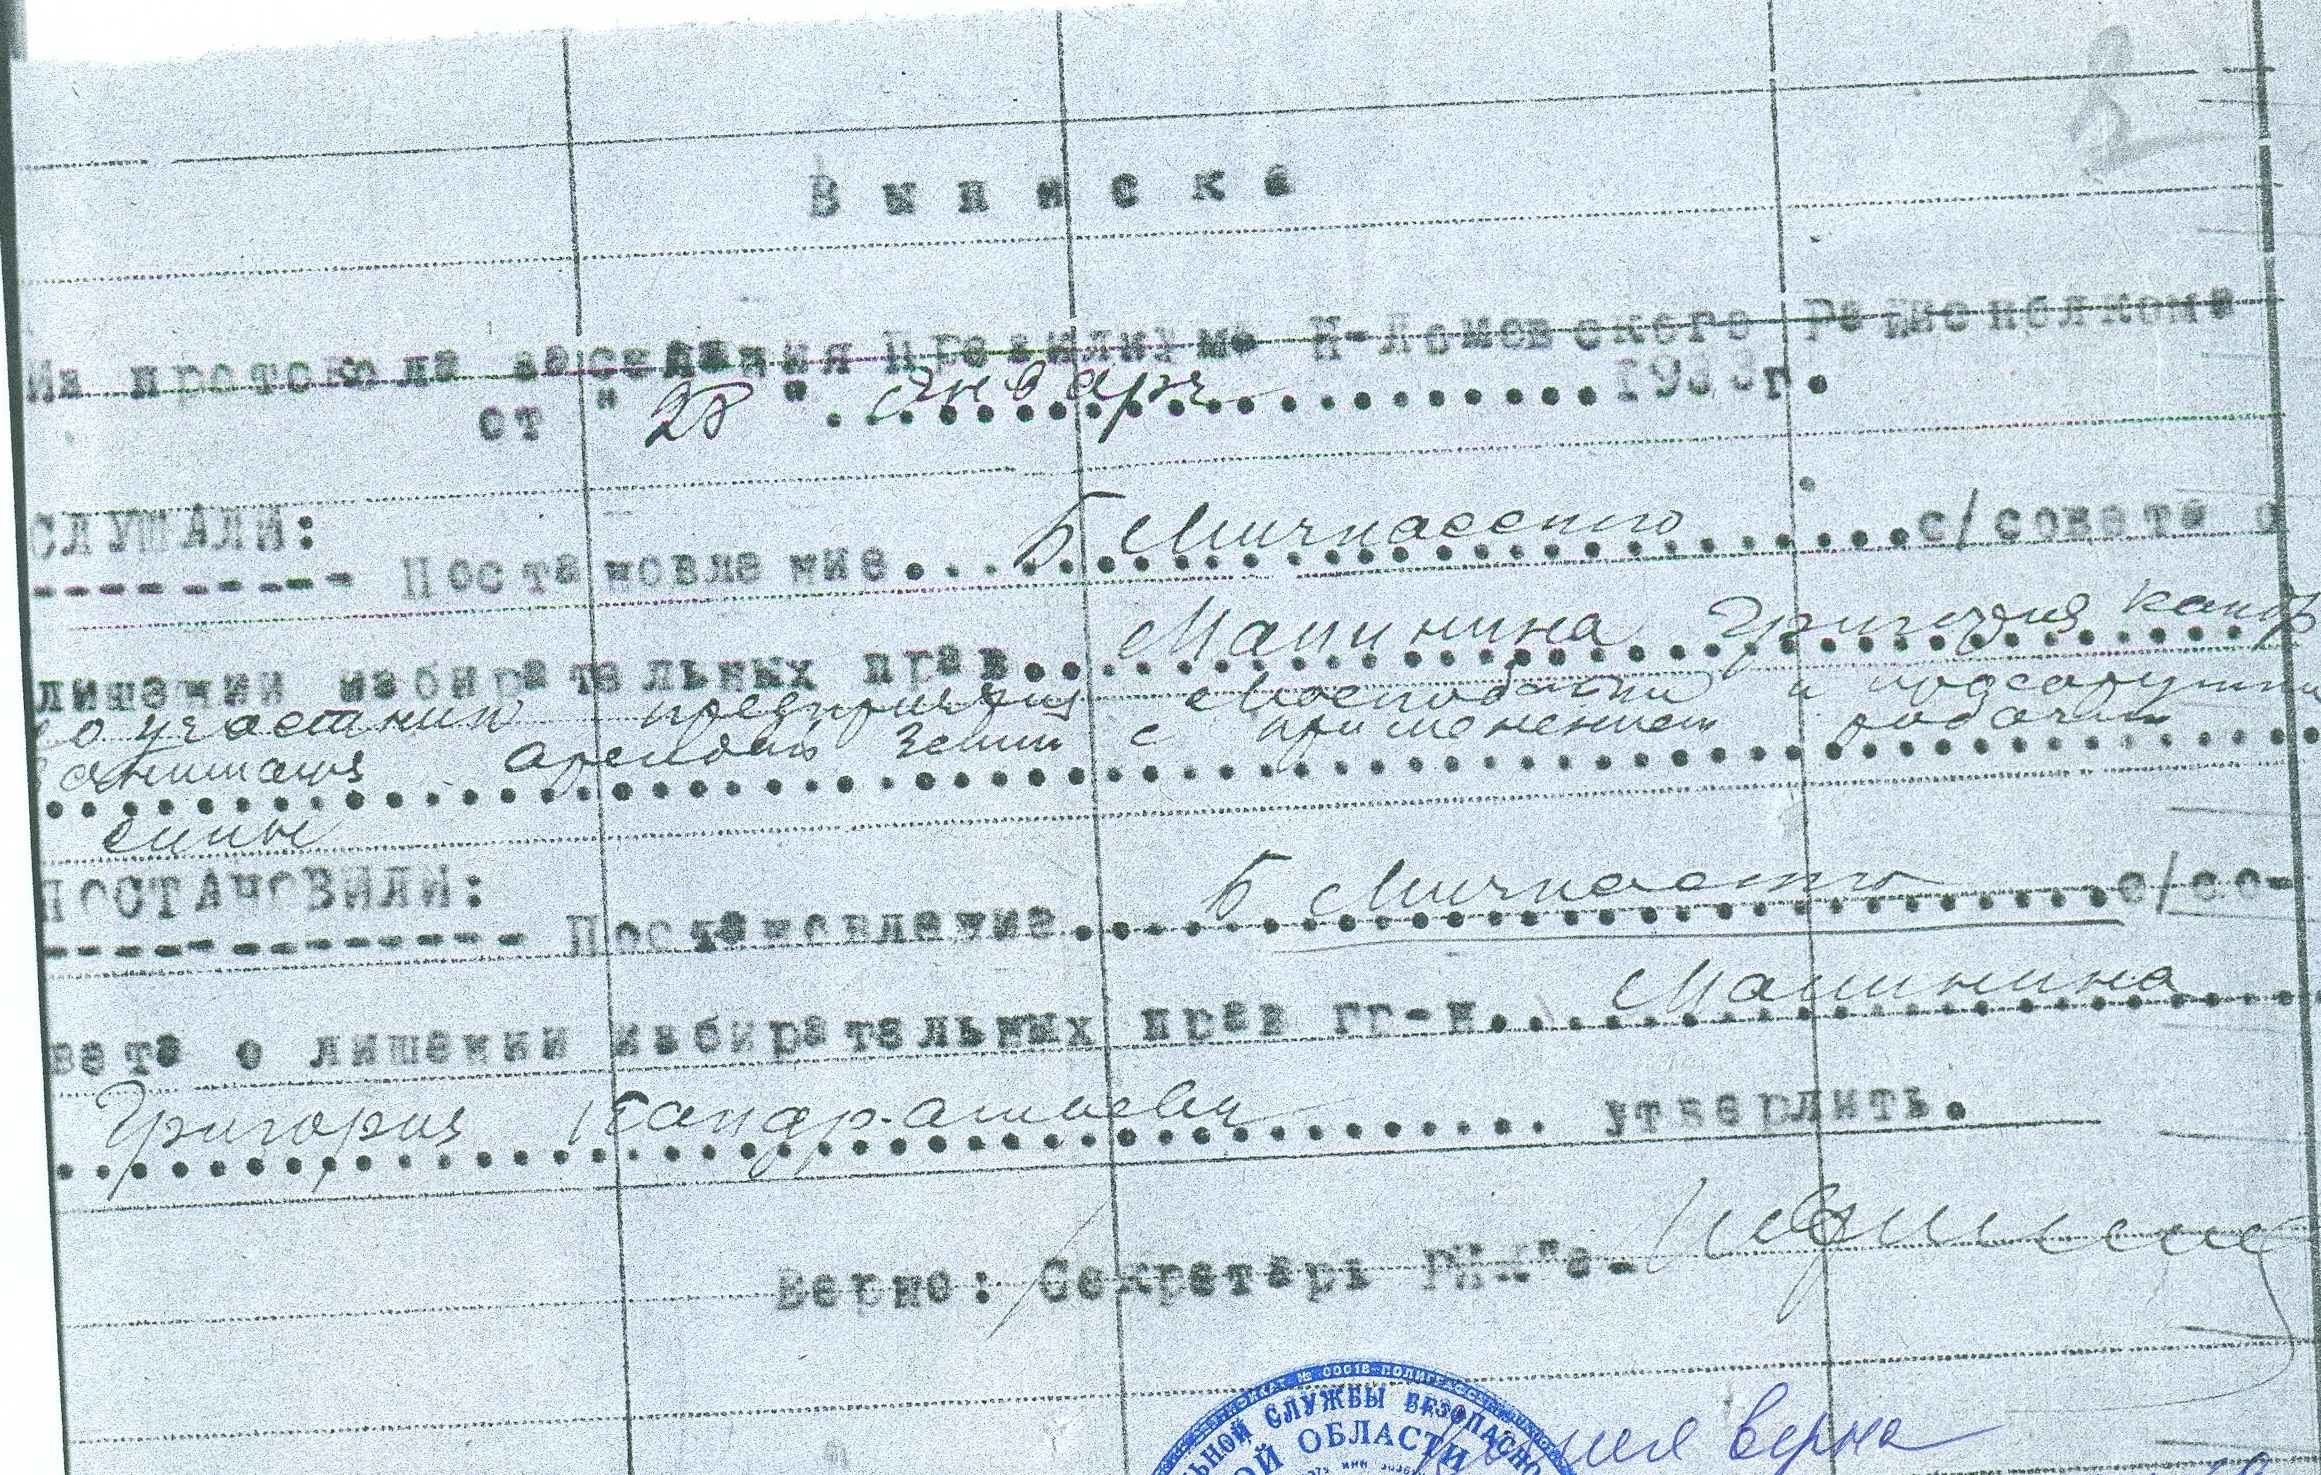 Выписка
Из протокола заседания Президиума Н-Ломовского Райисполкома
от "28" января 1933г.
СЛУШАЛИ:
Постановление... Б Мичкасского...с/совета о
лишении избирательных прав... Машинина Григория Канд
участник предприятия и
аренды земли с применением рабочей
силы
ПОСТАНОВИЛИ:
Постановление... Б Мичкасского...с/со-
вета о лишении избирательных прав гр-н... Машинина
Григория Кандратьевича... утвердить.
Верно: Секретарь РИК"а-
Копия верна
ЬНОЙ СЛУЖБЫ БЕЗОПАСНО
ОЙ ОБЛАСТИ